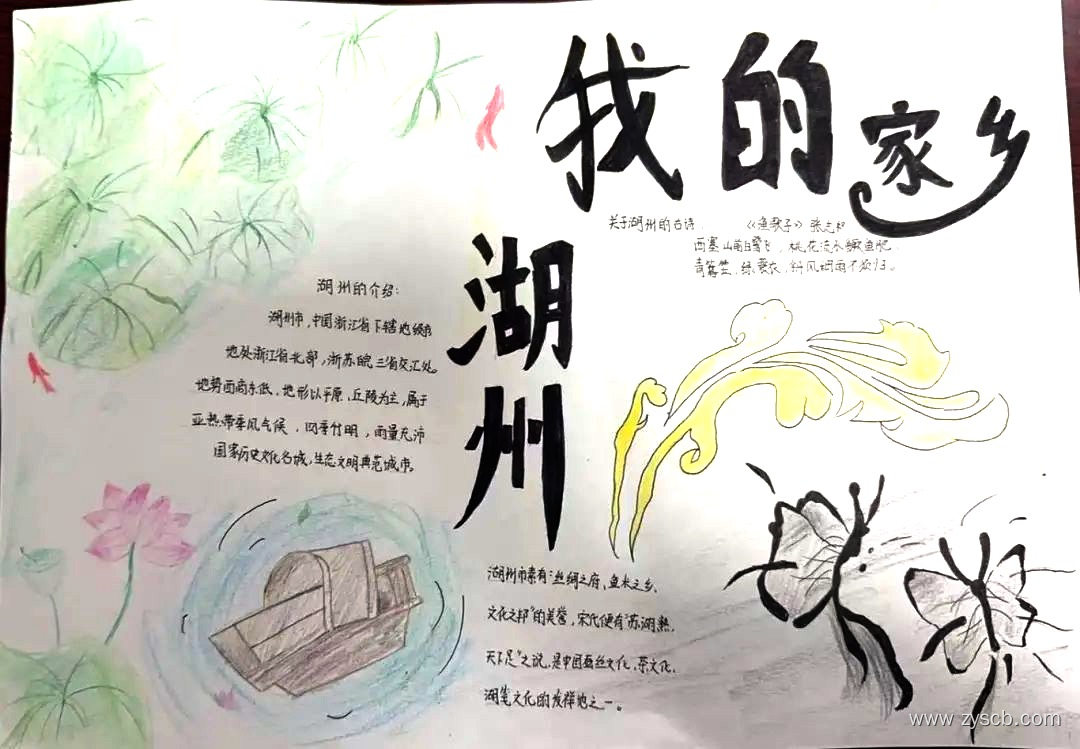 我的家乡
湖州
关于湖州的古诗 《渔歌子》张志和
西塞山前白鹭飞，桃花流水鳜鱼肥。
青箬笠，绿蓑衣，斜风细雨不须归。
湖州的介绍：
湖州市，中国浙江省下辖地级市
地处浙江省北部，浙苏皖三省交汇处。
地势西高东低，地形以平原、丘陵为主，属于
亚热带季风气候，四季分明，雨量充沛
国家历史文化名城，生态文明典范城市。
湖州市素有“丝绸之府、鱼米之乡、
文化之邦”的美誉，宋代便有“苏湖熟，
天下足”之说，是中国蚕丝文化、茶文化、
湖笔文化的发祥地之一。
www.zyscb.com